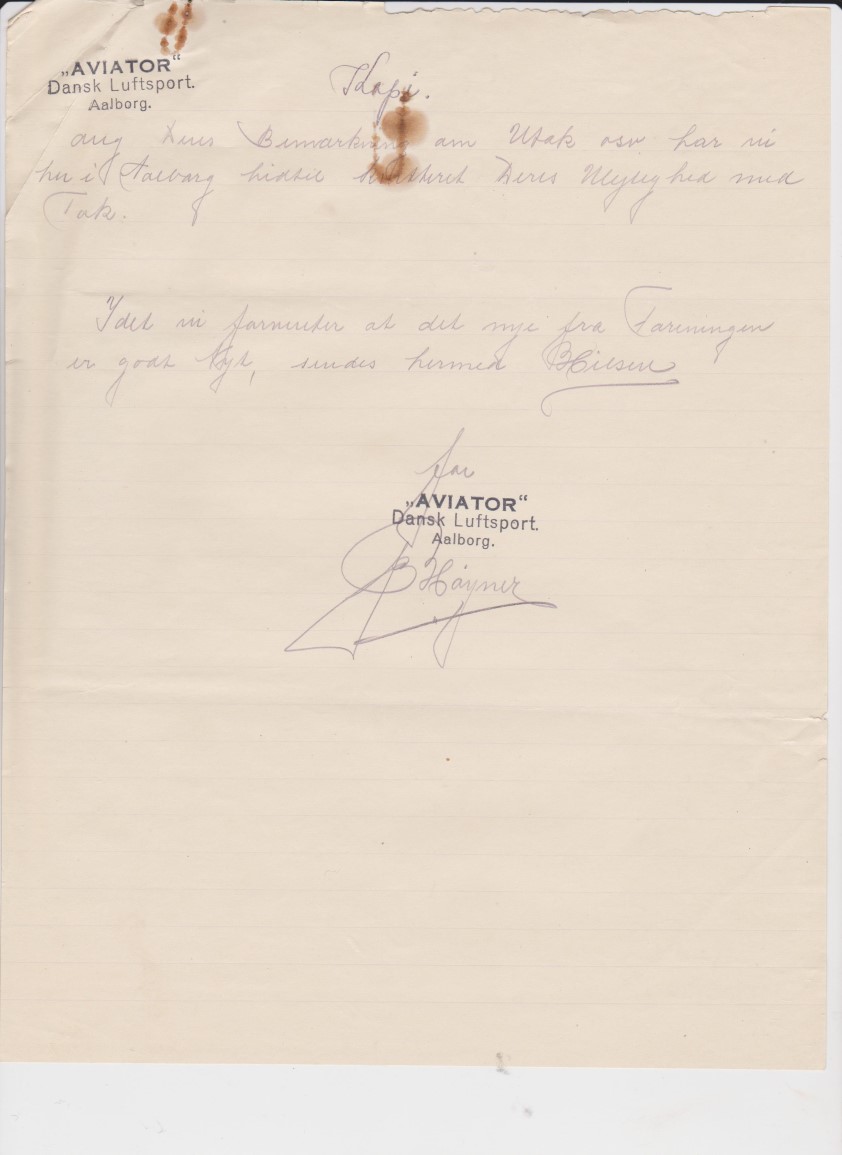 „AVIATOR“
Dansk Luftsport.
Aalborg.
Kopi.
ang Deres Bemærkning om Utak osv har vi
her i Aalborg hidtil kvitteret Deres Ulejlighed med
Tak.
Idet vi forventer at det nye fra Foreningen
er godt Nyt, sendes hermed
for
„AVIATOR“
Dansk Luftsport.
Aalborg.
B Høyner